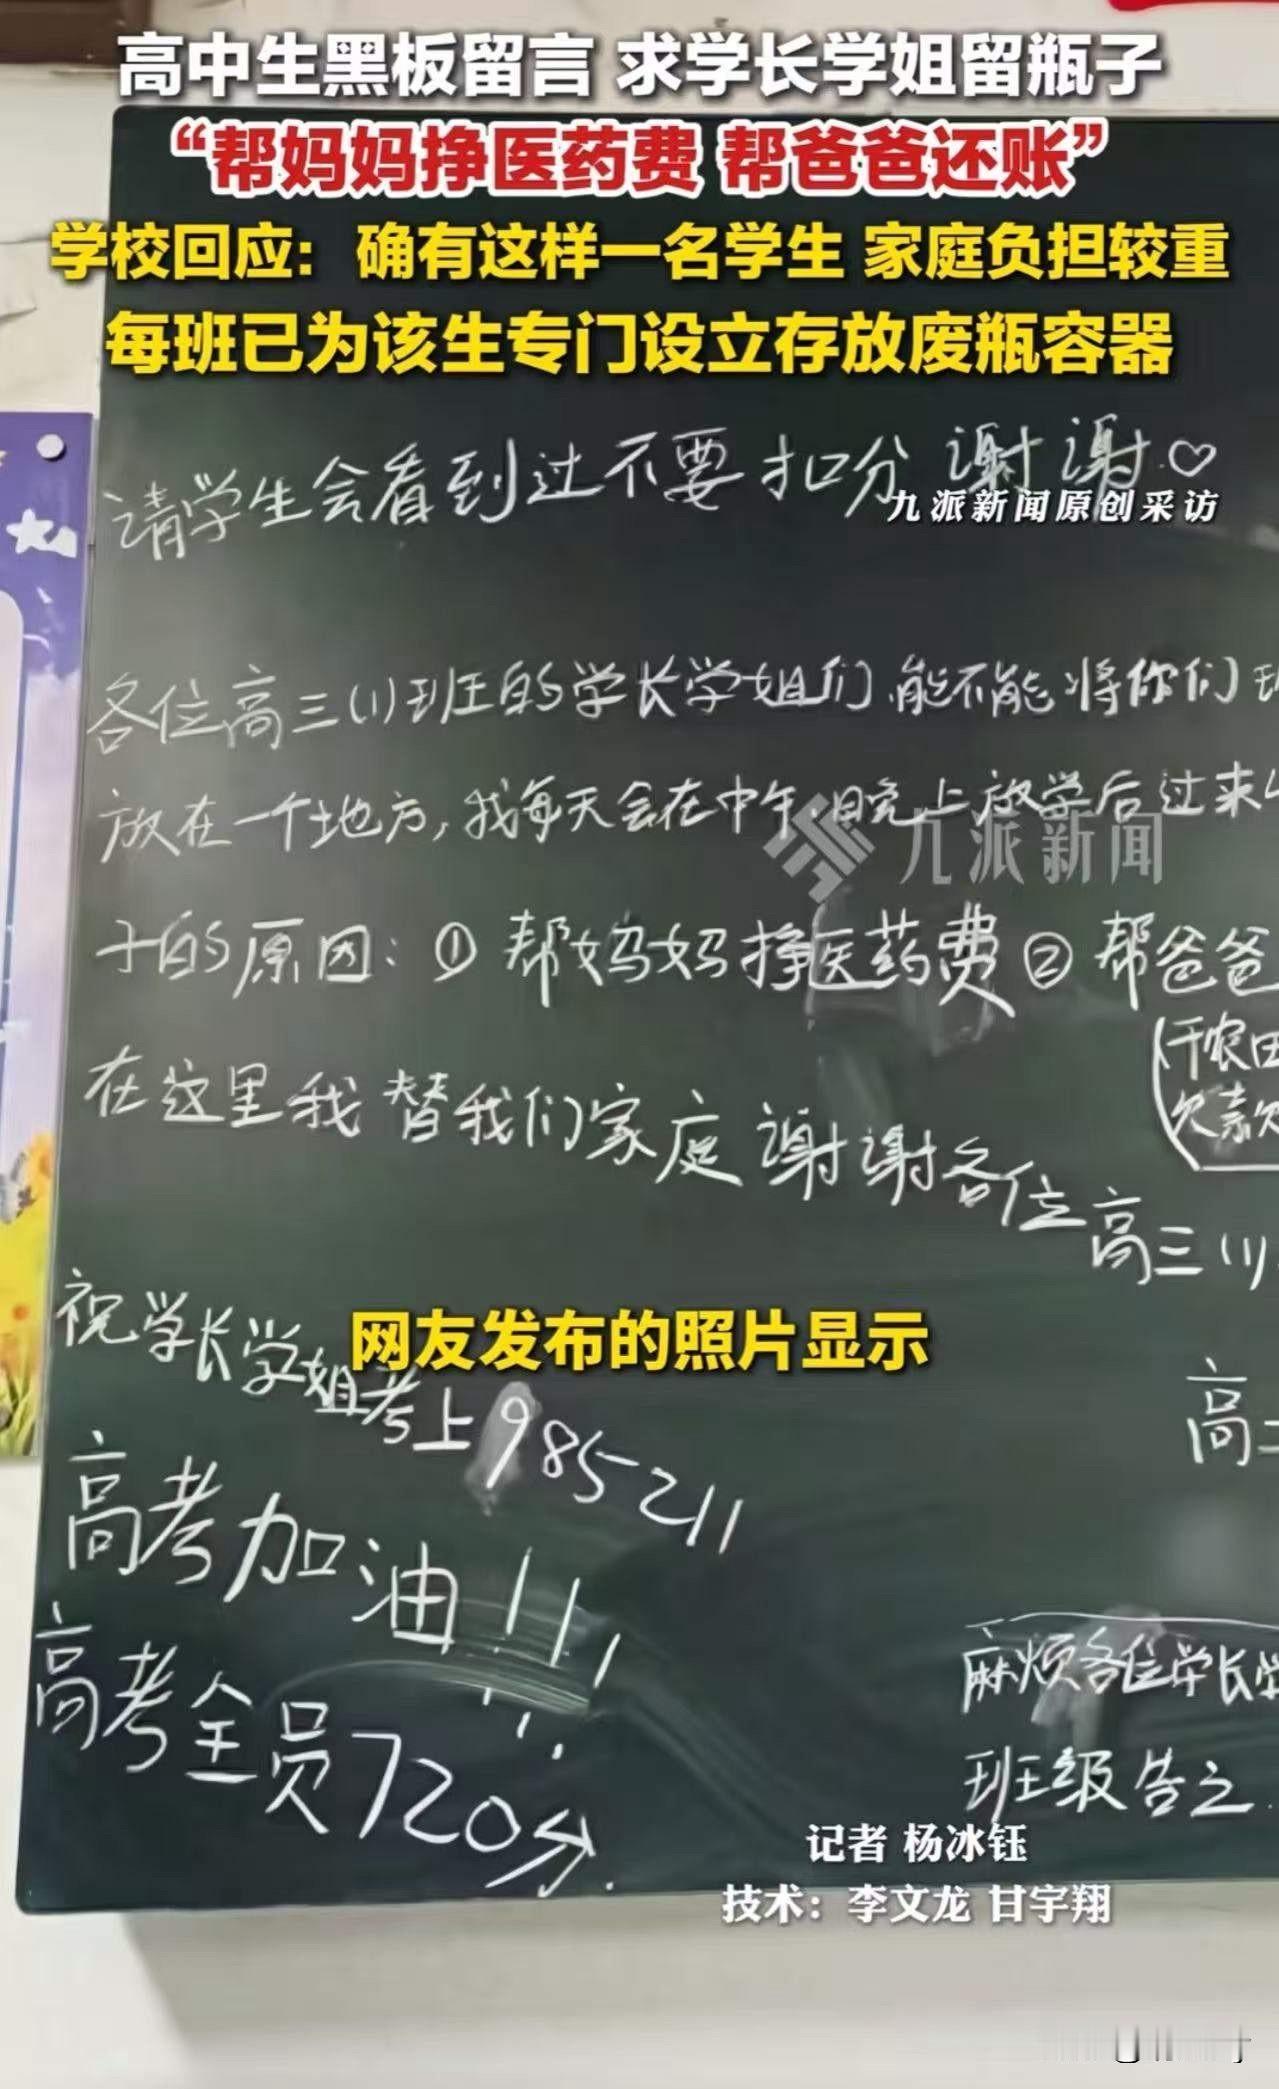 高中生黑板留言 求学长学姐留瓶子
“帮妈妈挣医药费 帮爸爸还账”
学校回应：确有这样一名学生 家庭负担较重
每班已为该生专门设立存放废瓶容器
请学生会看到过不要扣分 谢谢♡
九派新闻原创采访
各位高三(1)班的学长学姐们,能不能将你们
放在一个地方,我每天会在中午,晚上放学后过来
九派新闻
子的原因:①帮妈妈挣医药费②帮爸爸
(干农田
欠款欠
在这里我替我们家庭谢谢各位高三(1)
祝学长学姐考上985 211
网友发布的照片显示
高
高考加油!!!
高考全员720分.
麻烦各位学长学
班级告之.
记者 杨冰钰
技术：李文龙 甘宇翔